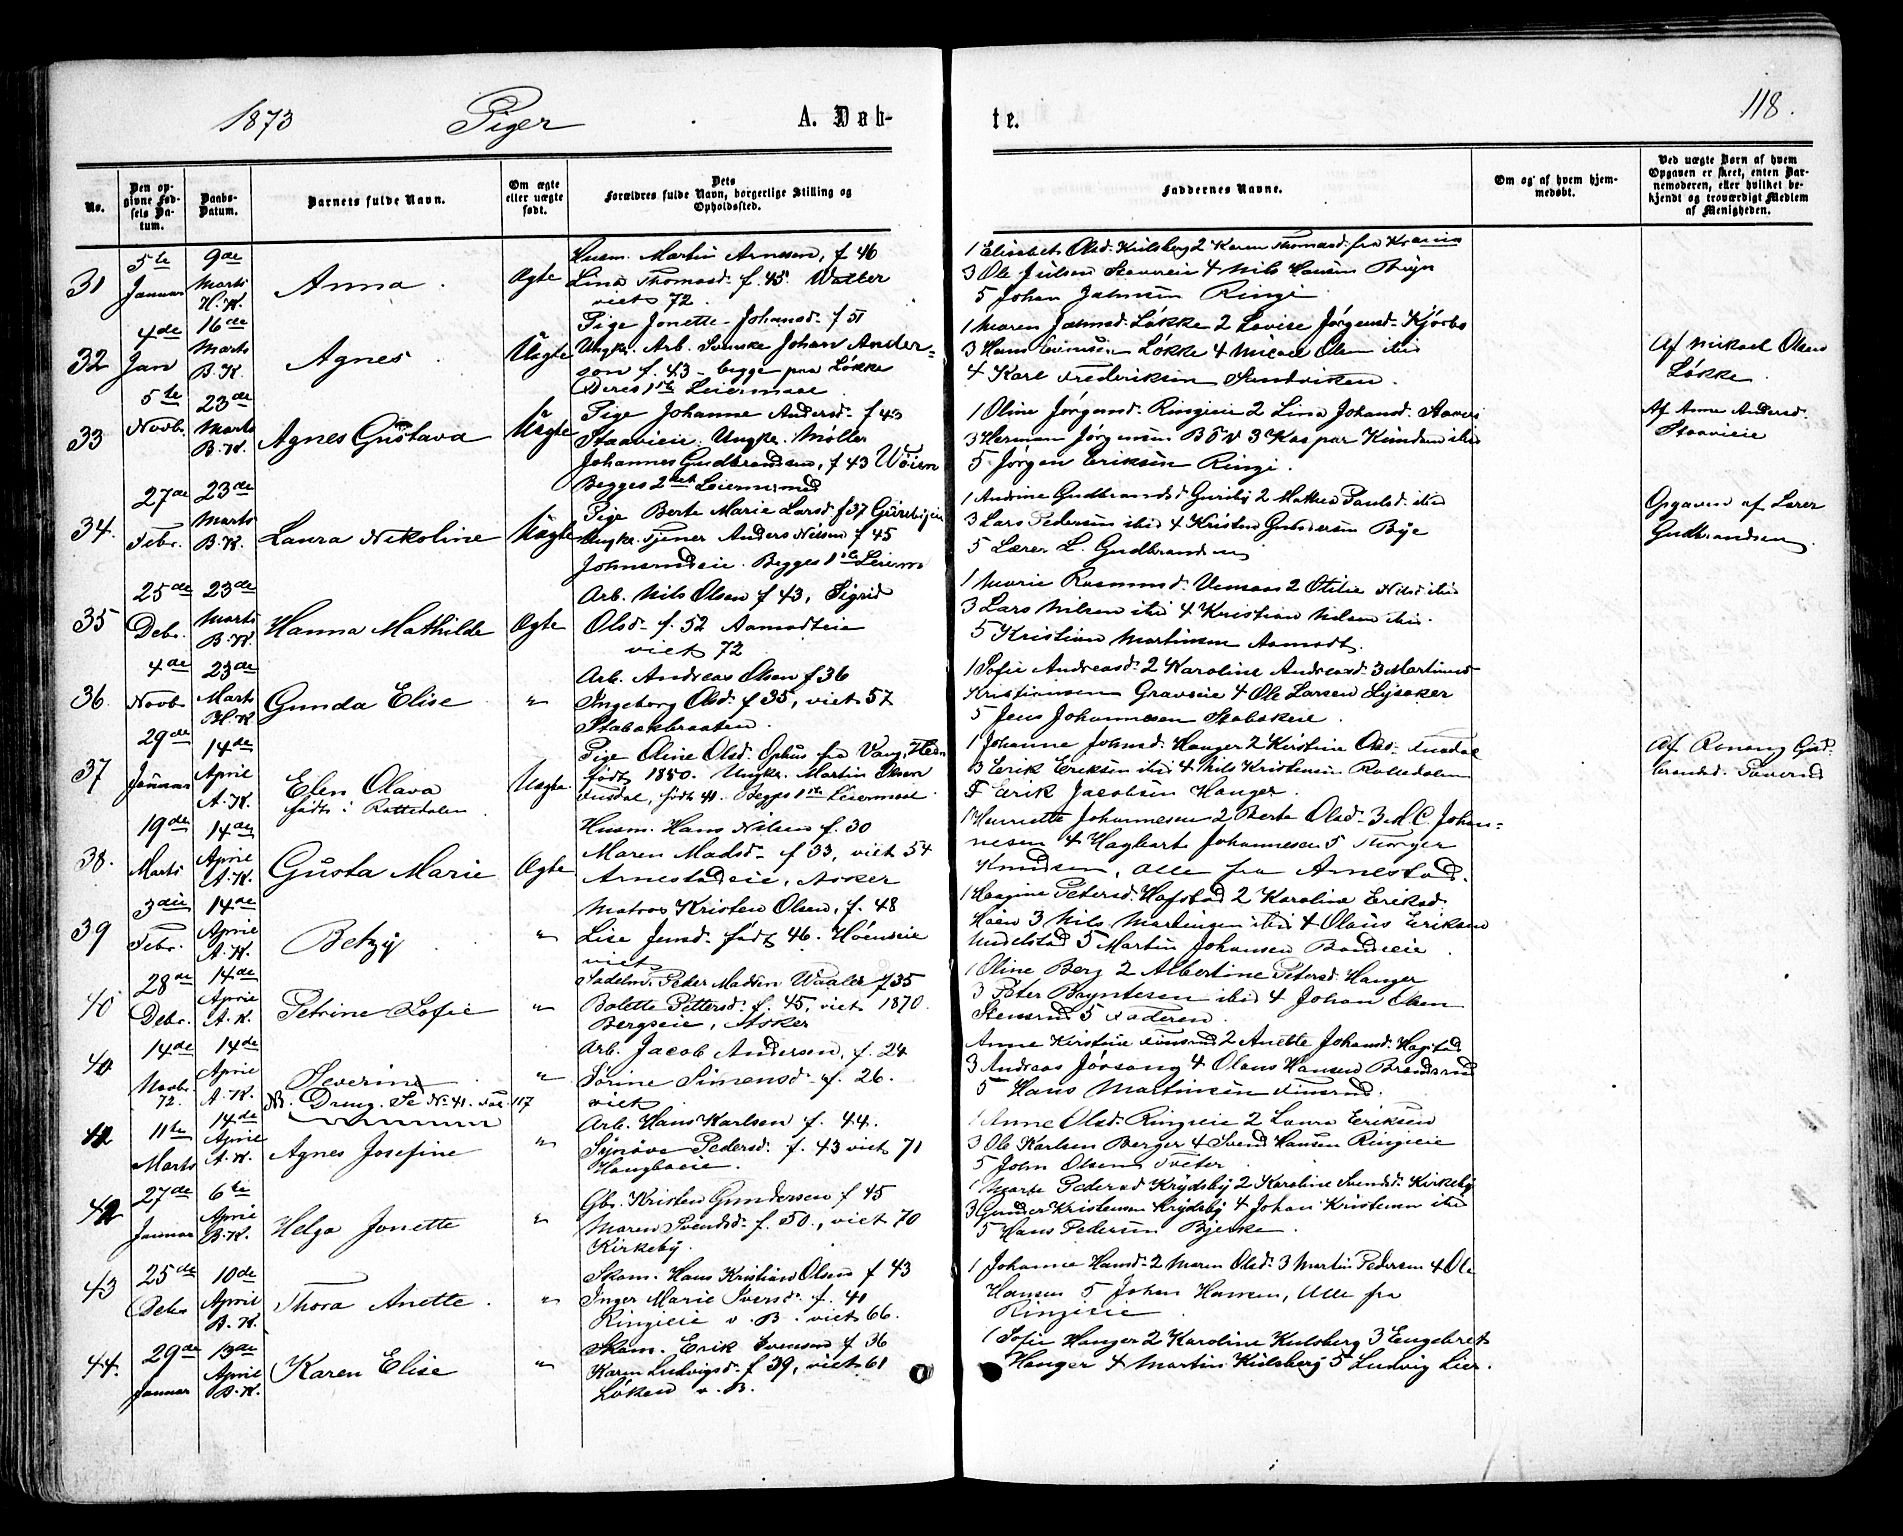 1873 Piger A. Døb-
te. 118.
No.
Den op-
givne Fød-
sels Da-
tum.
Daabs-
Datum.
Barnets fulde Navn.
Om ægte
eller uægte
født.
Dets
Forældres fulde Navn, borgerlige Stilling og
Opholdssted.
Faddernes Navne.
Om og af hvem hjem-
medøbt.
Ved uægte Børn af hvem
Opgaven er skeet, enten Bar-
nemoderen, eller hvilket be-
kjendt og troværdigt Medlem
af Menigheden.
31
5te
Januar
9de
Marts
H. K.
Anna
Ægte
Husm. Martin Arnesen, f 46
Lina Thomasd. f. 45. Walter
viet 72.
1 Elisabeth Olsd. Kulsberg 2 Karen Thomasd. fra
3 Ole Julsen Staverie 4 Nils Hansen
5 Johan Ringi
32
4de
Jan
16de
Marts
B. K.
Agnes
Uægte
Pige Jonette Johansd. f 51
Ungkr. Arb. Svenske Johan Ander-
son f. 43 - begge paa Løkke
Deres 1ste Leiermaal
1 Maren Løkke 2 Lovise Jørgensd. Kjørbo
3 Hans Løkke 4 Micael Olsen ibid
4 Karl Frederiksen Sandviken.
Af Mikael Olsen
Løkke
33
5te
Novbr.
23de
Marts
B. K.
Agnes Gustava
Uægte
Pige Johanne Andersd. f 43
Staavieie. Ungkr. Møller
Johannes Gudbrandsen, f 43 Wøien
Begges 2det Leiermaal
1 Oline Jørgensd. Ringieie 2 Lina Johansd.
3 Herman Jørgensen Bö v 3 Kaspar Knudsen ibid
5 Jørgen Eriksen Ringi.
Af Anne Andersd.
Staavieie
34.
27de
Febr.
23de
Marts
B. K.
Laura Nikoline
Uægte
Pige Berte Marie Larsd. f 37
Ungkr. Tjener Anders Nilsen f 45
Begges 1ste Leierm.
1 Andrine Gudbrandsd 2 Mathea Paulsd. ibid
3 Lars Pedersen ibid 4 Kristen Gundersen Bye
5 Lærer L. Gudbrandsen
Opgaven af Lærer
Gudbrandsen
35
25de
Debr.
23de
Marts
B. K.
Hanna Mathilde
Ægte
Arb. Nils Olsen f 43, Sigrid
Olsd. f. 52 Aamodteie
viet 72
1 Marie Rasmusd. 2 Otilie Nilsd. ibid
3 Lars Nilsen ibid 4 Kristian Nilsen ibid.
5 Kristian Martinsen Aamodt.
36
4de
Novbr.
23de
Marts
B. K.
Gunda Elise
"
Arb. Andreas Olsen f 36
Ingeborg Olsd. f 35, viet 57
Stabækbraaten.
1 Sofie Andreasd. 2 Karoline Andreasd. 3 Martinus
Kristiansen Gravseie 4 Ole Larsen Lysaker
5 Jens Johannesen Stabækeie.
37
29de
Januar
14de
April
A. K.
Elen Olava
født i Rottedalen
Uægte
Pige Oline Olsd. Ophus fra Vang, Hedm
født 1850. Ungkr. Martin Olsen
født 41. Begges 1ste Leiermaal
1 Johanne Johnsd. Hanger 2 Kirstine Olsd.
3 Erik Eriksen ibid 4 Nils Kristensen Rottedalen
5 Erik Jacobsen Hanger.
Af Ronang Gud-
brandsd.
38.
19de
Marts
14de
April
A. K.
Gusta Marie
Ægte
Husm. Hans Nilsen f. 30
Maren Madsd. f 33, viet 54
Arnestadeie, Asker
1 Henriette Johannesen 2 Berte Olsd. 3 M. C. Johan-
nesen 4 Hagbart Johannesen 5 Thorger
Knudsen, alle fra Arnestad.
39
3die
Febr.
14de
April
A. K.
Betzy
"
Matros Kristen Olsen, f. 48
Lise Jensd. født 46. Høenseie
viet
1 Petersd. Hofstad 2 Karoline Eriksd.
Høen 3 Nils ibid 4 Olaus Eriksen
Undelstad 5 Martin Johansen
40
28de
Debr.
14de
April
A. K.
Petrine Sofie
"
Sadelm. Peter Madsen Waaler f 35
Bolette Pettersd. f. 45, viet 1870.
Bergseie, Asker
1 Oline Berg 2 Albertine Petersd. Hanger
3 Peter Bryntesen ibid 4 Johan Olsen
Stensrud 5 Faderen.
40
14de
Novbr.
72.
14de
April
A. K.
Severin
NB. Dreng. Se No 41. Fol. 117
"
Arb. Jacob Andersen, f. 24
Sørine Simensd. f. 26.
viet
Anne Kirstine 2 Anette Johansd. Hogstad
3 Andreas Jørsong 4 Olaus Hansen
5 Hans Martinsen
41
11te
Marts
14de
April
A. K.
Agnes Josefine
"
Arb. Hans Karlsen f. 44.
Synøve Pedersd. f. 43 viet 71
Haugboeie.
1 Anne Olsd. Ringieie 2 Laura Eriksen
3 Ole Karlsen Berger 4 Svend Hansen Ringieie
5 John Olsen Tveter.
42
27de
Januar
6te
April
B. K.
Helga Jonette
"
Gbr. Kristen Gundersen f 45
Maren Svendsd. f. 50., viet 70
Kirkeby.
1 Marte Pedersd Krydsby 2 Karoline Svendsd. Kirkeby
3 Gunder Kristensen Krydsby 4 Johan Kristensen ibid
5 Hans Pedersen Bjerke.
43
25de
Debr
10de
April
B. K.
Thora Anette
"
Skom. Hans Kristian Olsen f 43
Inger Marie Iversd. f. 41
Ringieie v. B. viet 66.
1 Johanne Hansd. 2 Maren Olsd. 3 Martin Pedersen 4 Ole
Hansen 5 Johan Hansen, Alle fra
Ringieie
44.
29de
Januar
13de
April
B. K.
Karen Elise
"
Skom. Erik Svensen f 36
Karen Ludvigsd. f 39, viet 61
Løken v. B.
1 Sofie Hanger 2 Karoline Kulsberg 3 Engebret
Hanger 4 Martin Kulsberg 5 Ludvig Lier.